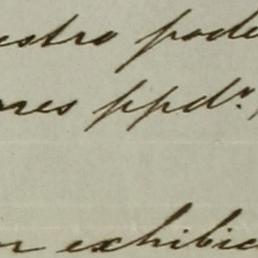 estro pode
ores ppdr.
or exhibic